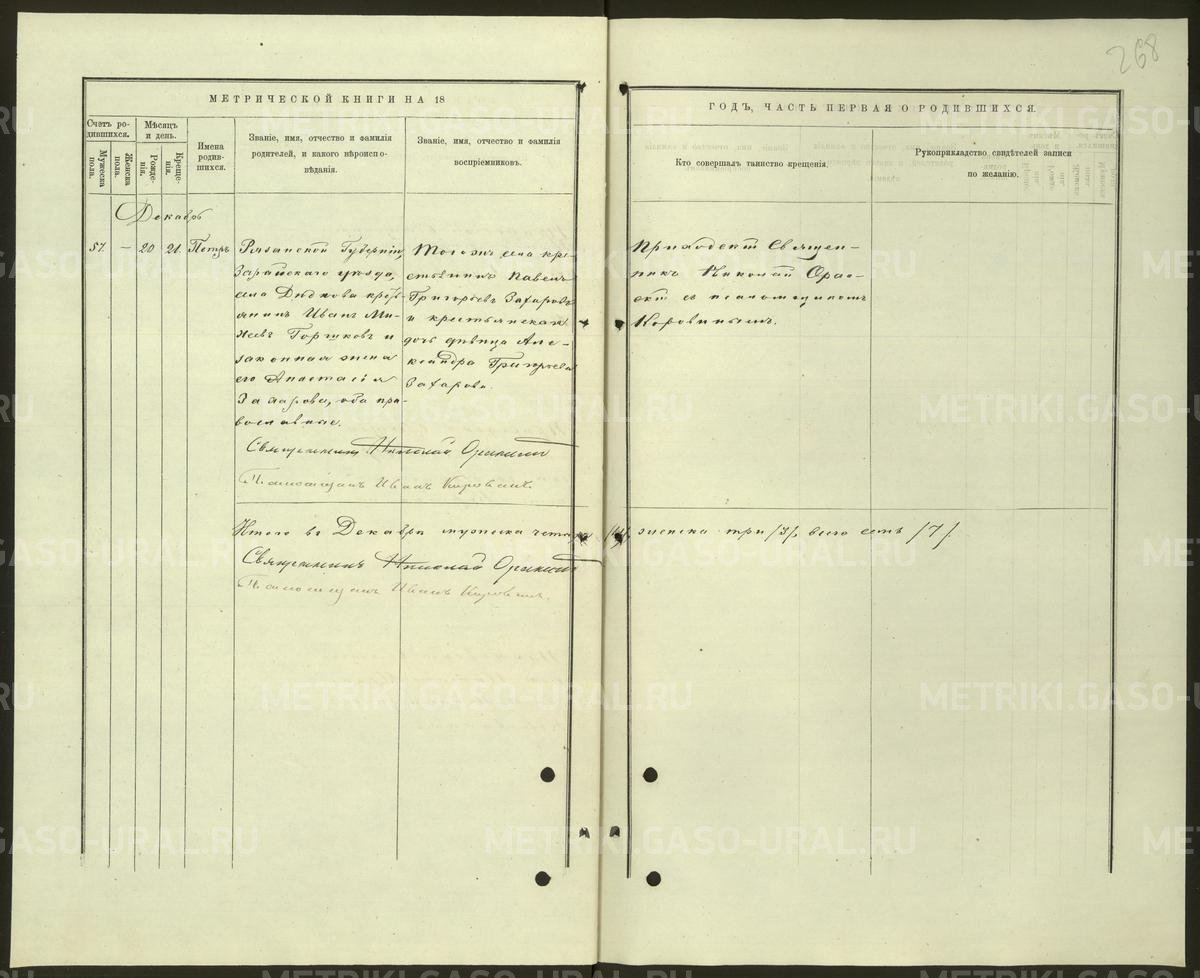 268
МЕТРИЧЕСКОЙ КНИГИ НА 18
ГОДЪ, ЧАСТЬ ПЕРВАЯ О РОДИВШИХСЯ.
Счетъ родившихся.
Мужеска пола.
Женска пола.
Мѣсяцъ и день.
Рожденія.
Крещенія.
Имена родившихся.
Званіе, имя, отчество и фамилія
родителей, и какого вѣроиспо-
вѣданія.
Званіе, имя, отчество и фамилія
воспріемниковъ.
Кто совершалъ таинство крещенія.
Рукоприкладство свидѣтелей записи
по желанію.
Декабрь
57. — 20 21. Петръ
Рязанской Губерніи,
Зарайскаго уѣзда,
села Дѣднова кресть-
янинъ Иванъ Ми-
хеевъ Горшковъ и
законная жена
его Анастасія
Захарова, оба пра-
вославные.
Тогожъ села кре-
стьянинъ Павелъ
Григорьевъ Захаровъ
и крестьянская
дочь дѣвица Але-
ксандра Григорьева
Захарова.
Приходскій Священ-
никъ Николай
съ псаломщикомъ
Коровинымъ.
Священникъ Николай
Псаломщикъ Иванъ Коровинъ.
Итого въ Декабрѣ мужеска четыре /4/, женска три /3/, всего семь /7/.
Священникъ Николай
Псаломщикъ Иванъ Коровинъ.
METRIKI.GASO-URAL.RU